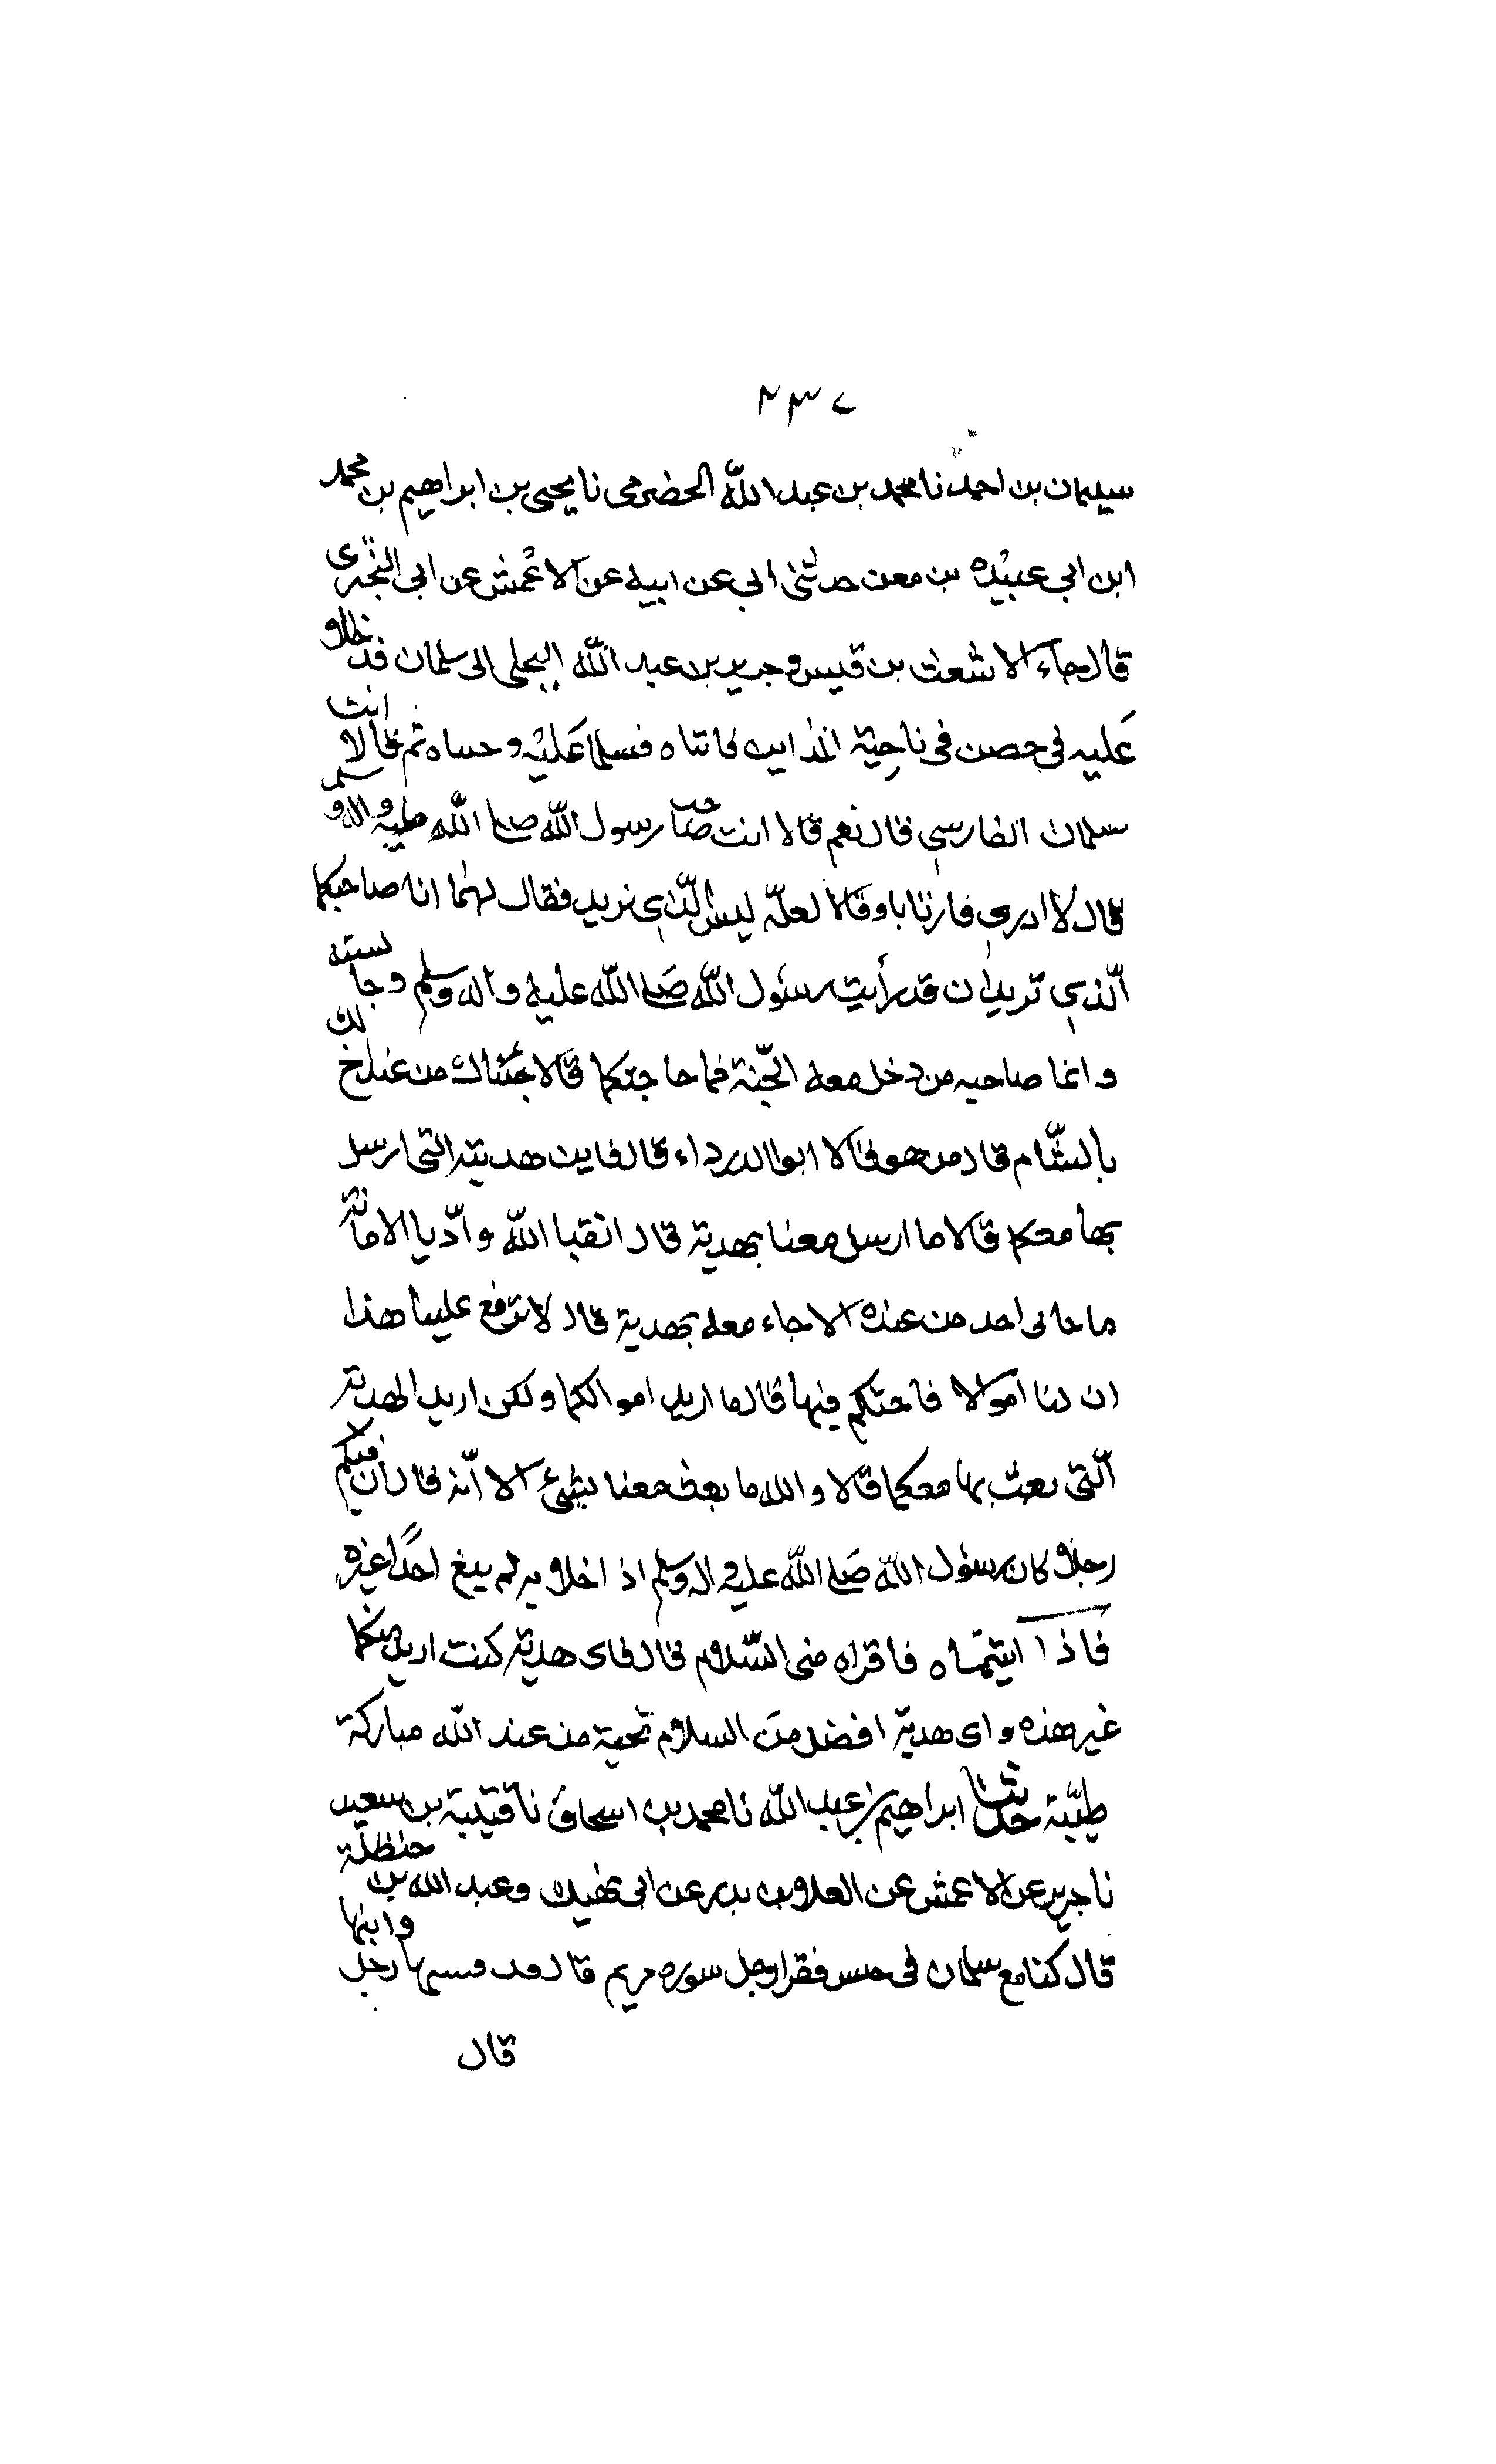 ٢٣٧
سليمان بن احمد نا محمد بن عبد الله الحضرمى نا يحيى بن ابراهيم بن محمد
ابن ابي عبيده بن معن حدثنى ابي عن ابيه عن الاعمش عن ابى البخترى
قال جاء الاشعث بن قيس وجرير بن عبد الله البجلى الى سلمان فدخلا
عليه في حصن فى ناحية المداين فاتناه فسلما عليه وحياه ثم قالا انت
سلمان الفارسي قال نعم قالا انت صاحب رسول الله صلى الله عليه واله وسلم
قال لا ادري فارتابا وقالا لعلّه ليس الّذي نريد فقال لهما انا صاحبكما
الّذي تريدان قد رأيت رسول الله صلى الله عليه واله وسلم وجالسته
وانما صاحبه من دخل معه الجّنة فما حاجتكما قالا جئناك من عند اخ لك
بالشّام قال من هو قالا ابو الدرداء قال فاين هديته التى ارسل
بها معكما قالا ما ارسل معنا بهدية قال اتقيا الله وادّيا الامانة
ما جانى احد من عنده الا جاء معه بهدية قال لا ترفع علينا هذا
ان لنا اموالا فاحتكم فيها قال ما اريد اموالكما ولكن اريد الهدية
الّتى بعث بها معكما قالا والله ما بعث معنا بشىء الا انّه قال ان فيكم
رجلا كان رسول الله صلى الله عليه واله وسلم اذا خلا به لم يبغ احدًا غيره
فاذا اتيتماه فاقراه منى السّلام قال فاى هدية كنت اريد منكما
غير هذه واى هدية افضل من السلام تحية من عند الله مباركة
طيّبة حدثنا ابراهيم بن عبد الله نا محمد بن اسحاق نا قتيبة بن سعيد
نا جرير عن الاعمش عن العلاء بن بدر عن ابى نهيك وعبد الله بن حنظلة
قال كنا مع سلمان فى جيس فقرا رجل سوره مريم قال فسبها رجل وابنها
قال